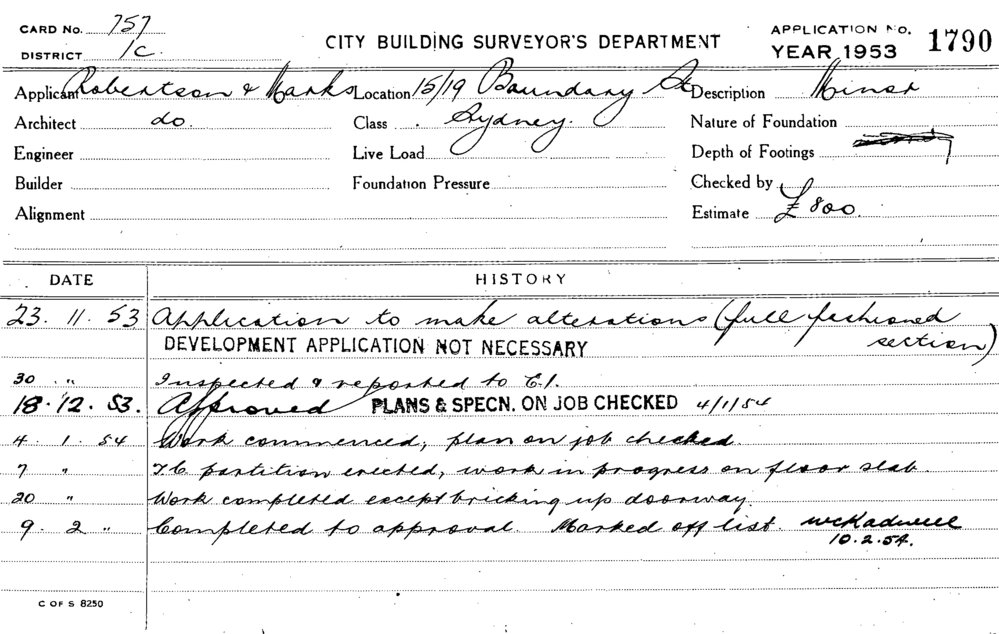 CARD No. 757
DISTRICT 1C.
CITY BUILDING SURVEYOR'S DEPARTMENT
APPLICATION No. 1790
YEAR 1953
Applicant Robertson & Marks Location 15/19 Boundary St Description Minor
Architect do. Class Sydney. Nature of Foundation
Engineer Live Load Depth of Footings
Builder Foundation Pressure Checked by
Alignment Estimate £800.
DATE HISTORY
23. 11. 53 Application to make alterations (full fashioned
section)
DEVELOPMENT APPLICATION NOT NECESSARY
30 " Inspected & reported to E.I.
18. 12. 53. Approved PLANS & SPECN. ON JOB CHECKED 4/1/54
4. 1. 54 Work commenced, plan on job checked
7 " T.C. partition erected, work in progress on floor slab.
20 " Work completed except bricking up doorway.
9. 2 " Completed to approval. Marked off list.
10.2.54.
C OF S 8250